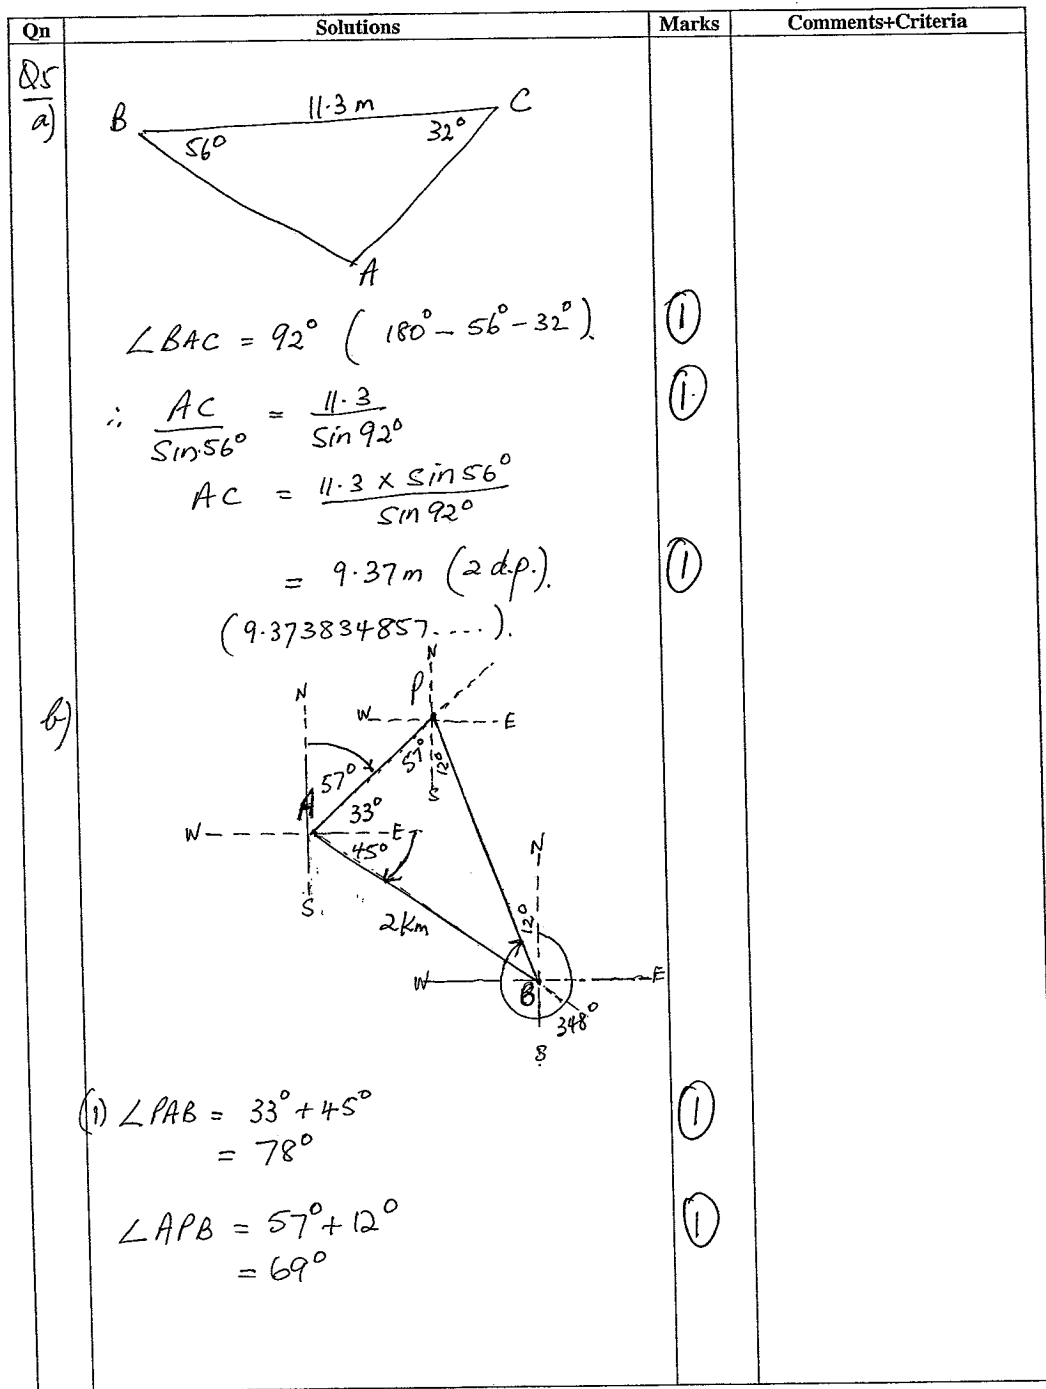 Qn Solutions Marks Comments+Criteria
Q5
a)
B 11.3 m C
56° 32°
A
∠BAC = 92° ( 180° - 56° - 32° ). 1
∴ AC / Sin 56° = 11.3 / Sin 92° 1
AC = 11.3 × Sin 56° / Sin 92°
= 9.37m (2 d.p.). 1
(9.373834857....).
b)
N
P
W E
57° 12°
S
N
57°
A 33°
W E
45°
S
2km
N
12°
W B E
348°
S
(i) ∠PAB = 33° + 45° 1
= 78°
∠APB = 57° + 12° 1
= 69°